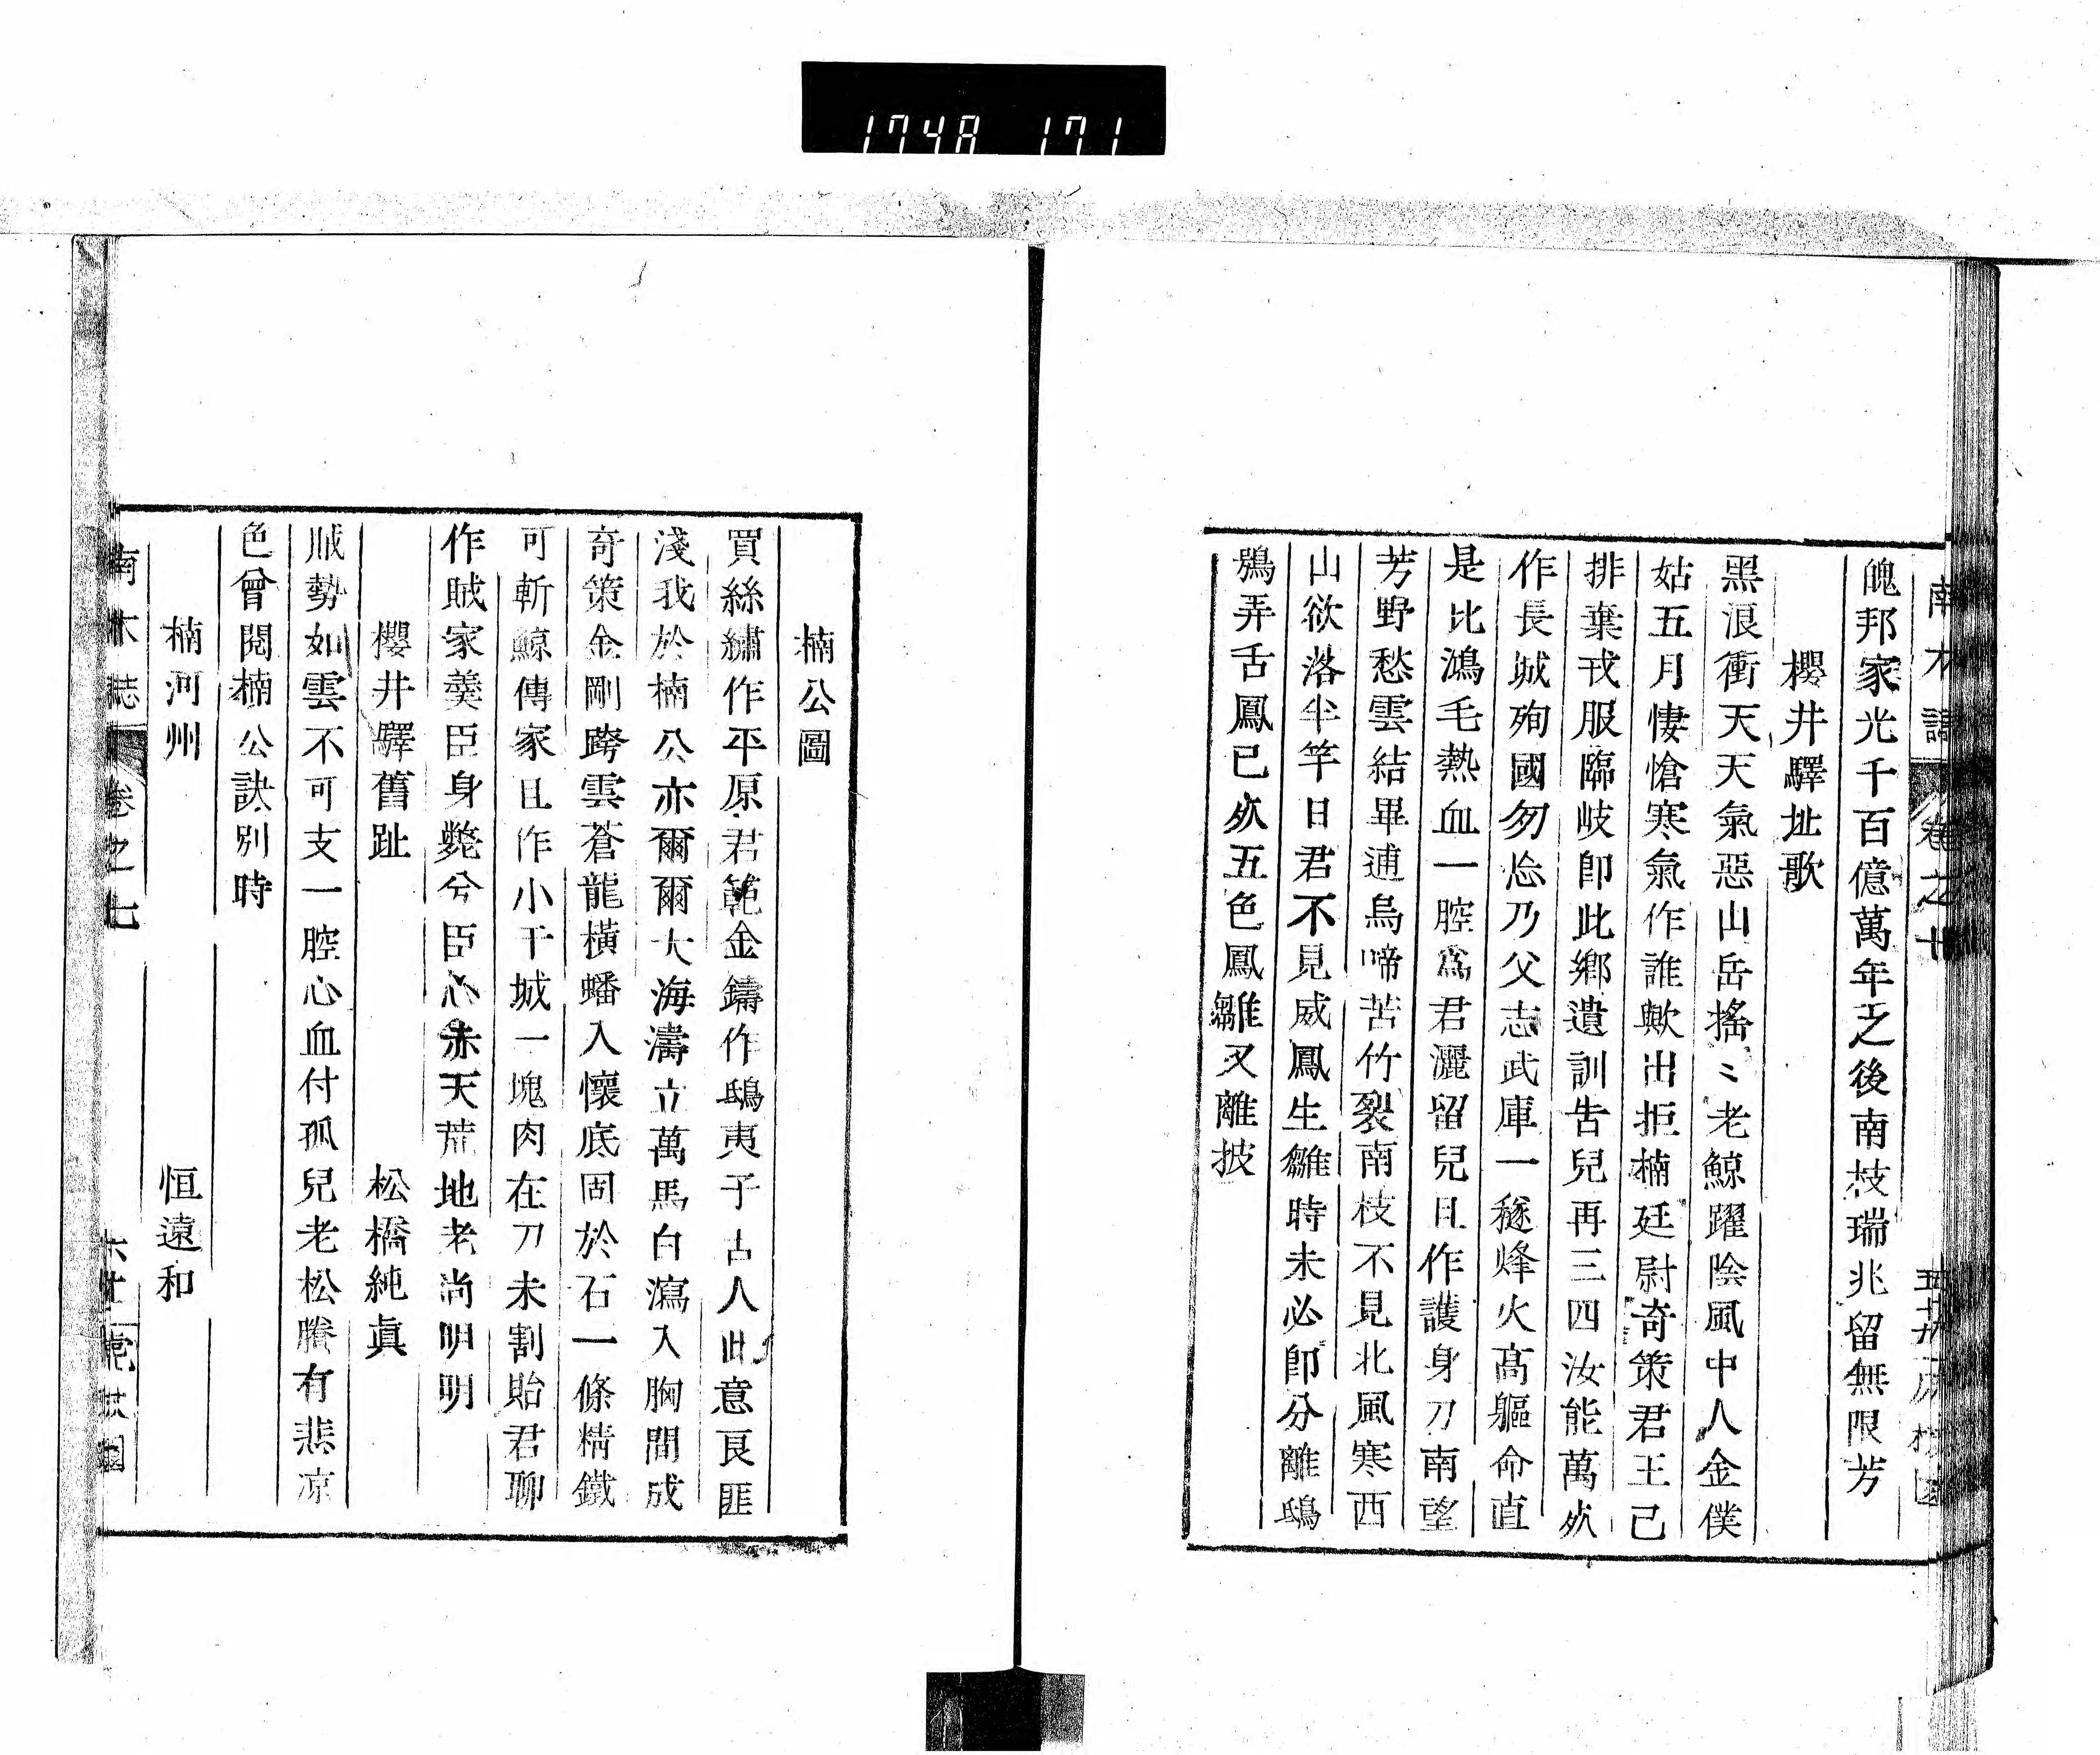 1748 171
魄邦家光千百億萬年之後南枝瑞兆留無限芳
櫻井驛址歌
黑浪衝天天氣惡山岳搖〻老鯨躍陰風中人金僕
姑五月悽愴寒氣作誰歟出拒楠廷尉奇策君王已
排棄戎服臨岐卽此鄉遺訓告兒再三四汝能萬炏
作長城殉國勿忩乃父志武庫一穟烽火髙軀命直
是比鴻毛熱血一腔爲君灑留兒且作護身刀南望
芳野愁雲結畢逋烏啼苦竹裂南枝不見北風寒西
山欲落半竿日君不見威鳳生雛時未必卽分離鴟
鴞弄舌鳳已炏五色鳳雛又離披
楠公圖
買絲繡作平原君範金鑄作鴟夷子古人此意良匪
淺我於楠公亦爾爾大海濤立萬馬白瀉入胸間成
奇策金剛跨雲蒼龍橫蟠入懷底固於石一條精鐵
可斬鯨傳家且作小干城一塊肉在刀未割貽君聊
作賊家羮臣身斃兮臣心赤天荒地老尚明明
櫻井驛舊趾
松橋純眞
賊勢如雲不可支一腔心血付孤兒老松賸有悲凉
色曾閱楠公訣別時
楠河州
恒遠和
南木誌
卷之七